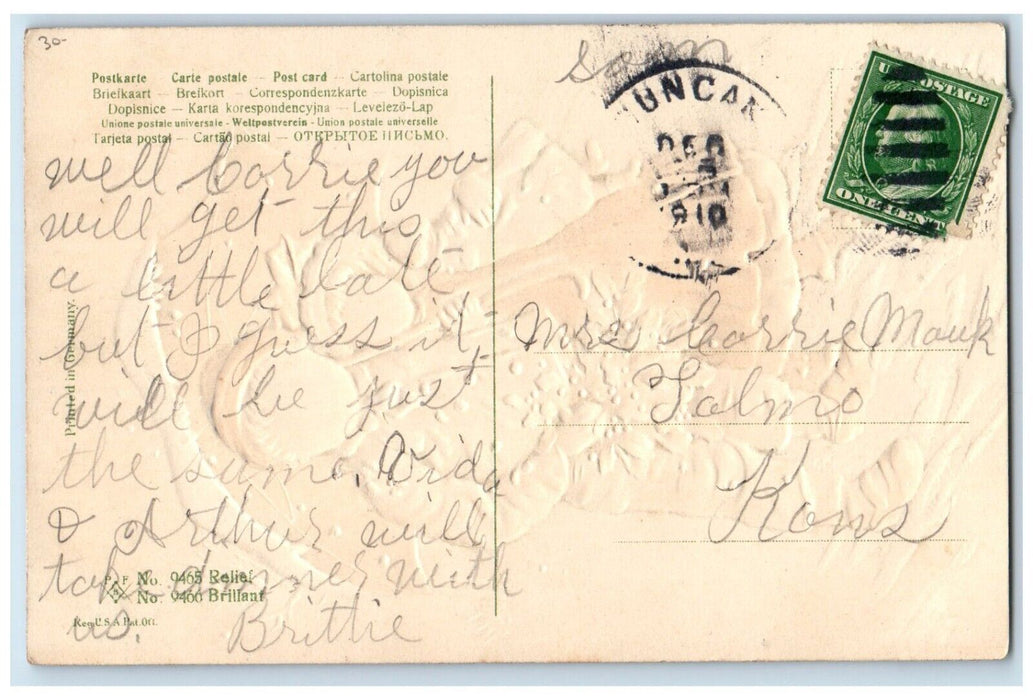 30-
Postkarte — Carte postale — Post card — Cartolina postale
Briefkaart — Brefkort — Correspondenzkarte — Dopisnica
Dopisnice — Karta korespondencyjna — Levelező-Lap
Unione postale universale - Weltpostverein - Union postale universelle
Tarjeta postal — Cartão postal — ОТКРЫТОЕ ПИСЬМО.
well Corrie you
will get this
a little late
but I guess it
will be just
the same. Vida
& Arthur will
take dinner with
us. Brittie
Printed in Germany.
P F B
No. 9465 Relief
No. 9466 Brillant
Reg. U.S.A Pat. Off.
UNCAN
DEC
1910
U.S. POSTAGE
ONE CENT
Mrs Corrie Mauk
Talmo
Kans